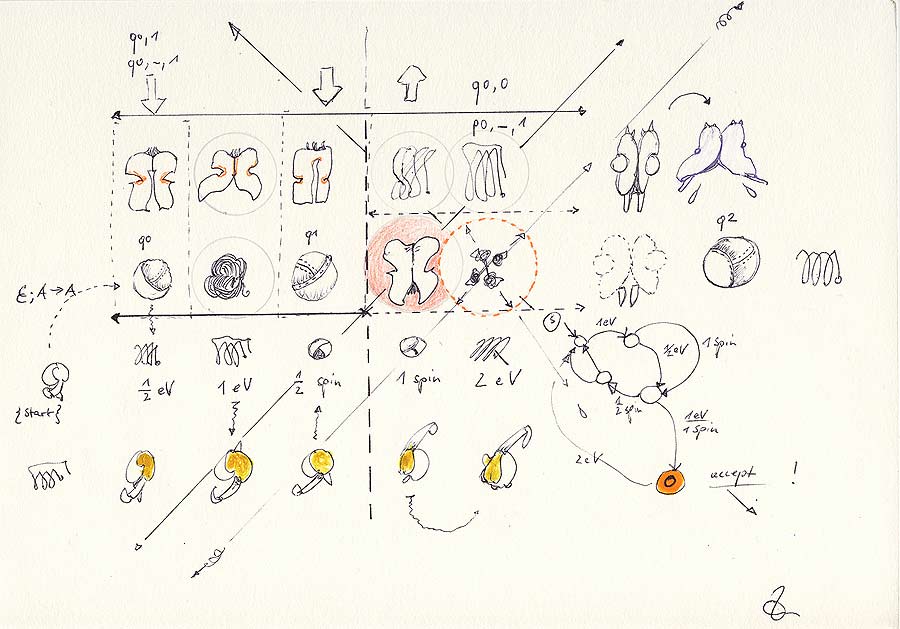 q0,1
q0,-,1
q0,0
p0,-,1
q0
q1
q2
ε;A→A
{start}
1/2 eV
1 eV
1/2 spin
1 spin
2 eV
S
1eV
1/2 eV
1 spin
1/2 spin
1eV
1 spin
2eV
accept !